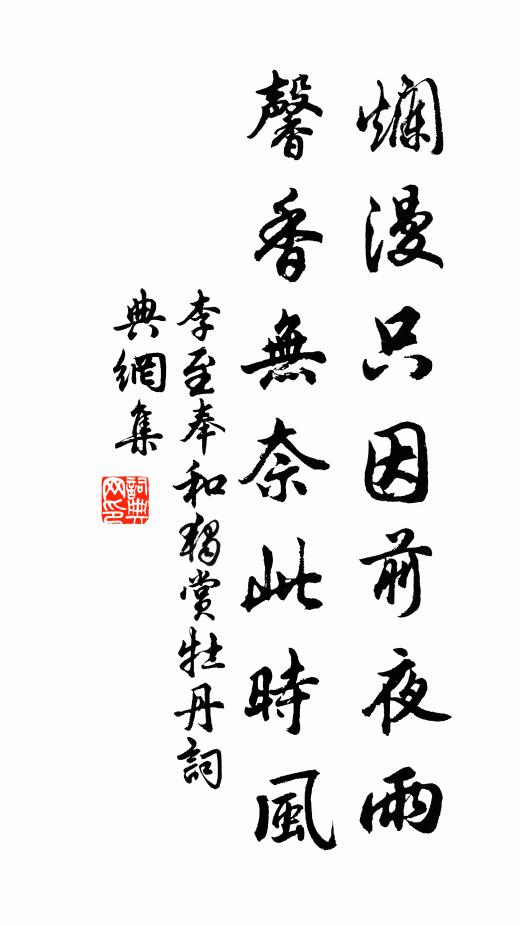 爛漫只因前夜雨
馨香無奈此時風
李至奉和獨賞牡丹詞
典網集
詞典網印